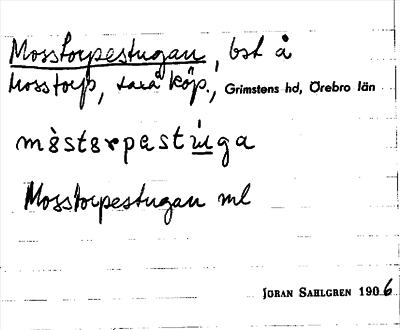 Mosstorpestugan, bst å
Mosstorp, Lerbä̊ck köp., Grimstens hd, Örebro län
mòstorpestúga
Mosstorpestugan ml
JÖRAN SAHLGREN 1906